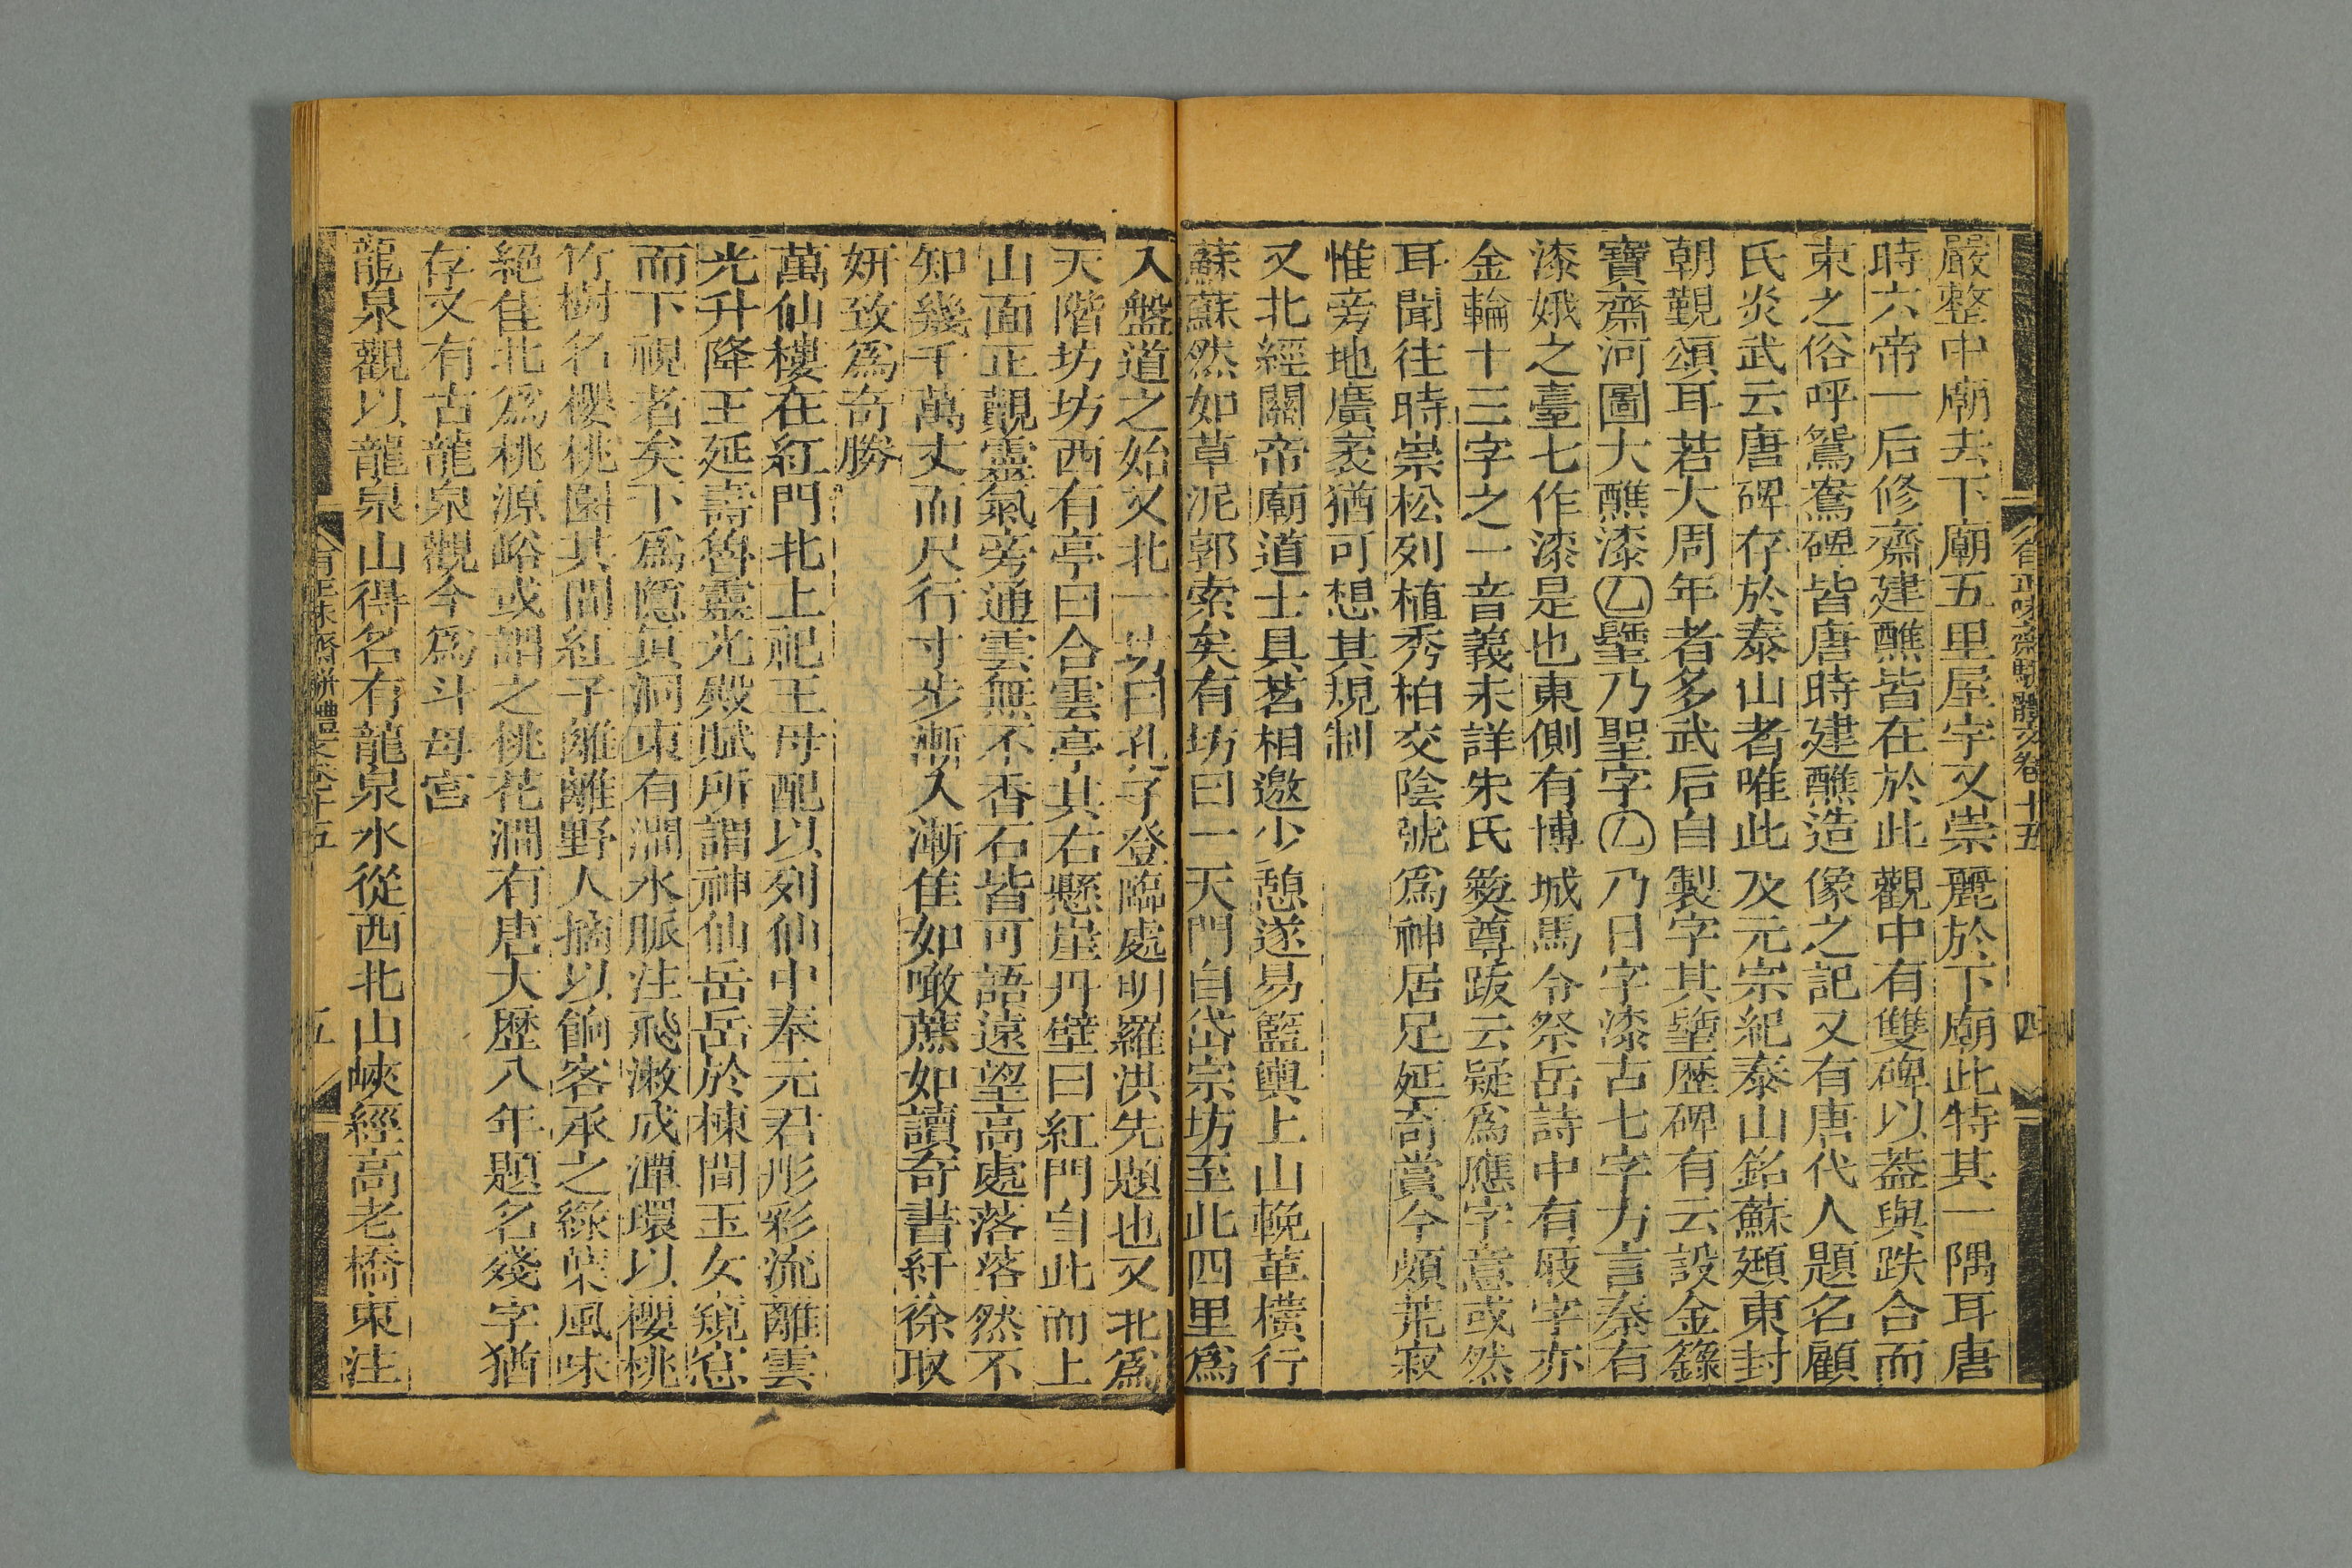 嚴整中廟去下廟五里屋宇又崇麗於下廟此特其一隅耳唐
時六帝一后修齋建醮皆在於此觀中有雙碑以葢與跌合而
束之俗呼鴛鴦碑皆唐時建醮造像之記又有唐代人題名顧
氏炎武云唐碑存於泰山者唯此及元宗紀泰山銘蘇頲東封
朝覲頌耳若大周年者多武后自製字其聖歷碑有云設金籙
寶齋河圖大醮漆乃日字漆古七字方言秦有
漆娥之臺七作漆是也東側有博城馬令祭岳詩中有字亦
金輪十三字之一音義未詳朱氏尊跋云疑爲應字意或然
耳聞往時崇松列植秀柏交陰號爲神居足延奇賞今頗荒寂
惟旁地廣袤猶可想其規制
又北經關帝廟道士具茗相邀少憩遂易籃輿上山輓革橫行
蘇蘇然如草泥郭索矣有坊曰一天門自岱宗坊至此四里爲
入盤道之始又北一坊曰孔子登臨處明羅洪先題也又北爲
天階坊坊西有亭曰合雲亭其右懸崖丹壁曰紅門自此而上
山面正覿靈氣旁通雲無不香石皆可語遠望高處落落然不
知幾千萬丈而尺行寸步漸入漸佳如噉蔗如讀奇書紆徐取
妍致爲奇勝
萬仙樓在紅門北上祀王母配以列仙中奉元君彤彩流離雲
光升降王延壽魯靈光殿賦所謂神仙岳岳於棟間玉女窺窓
而下視者矣下爲隱眞洞東有澗水脈注飛潄成潭環以櫻桃
竹樹名櫻桃園其間紅子離離野人摘以餉客承之綠葉風味
絕佳北爲桃源峪或謂之桃花澗有唐大歷八年題名殘字猶
存又有古龍泉觀今爲斗母宮
龍泉觀以龍泉山得名有龍泉水從西北山峽經高老橋東注
有正味齋駢體文卷十五
四
五